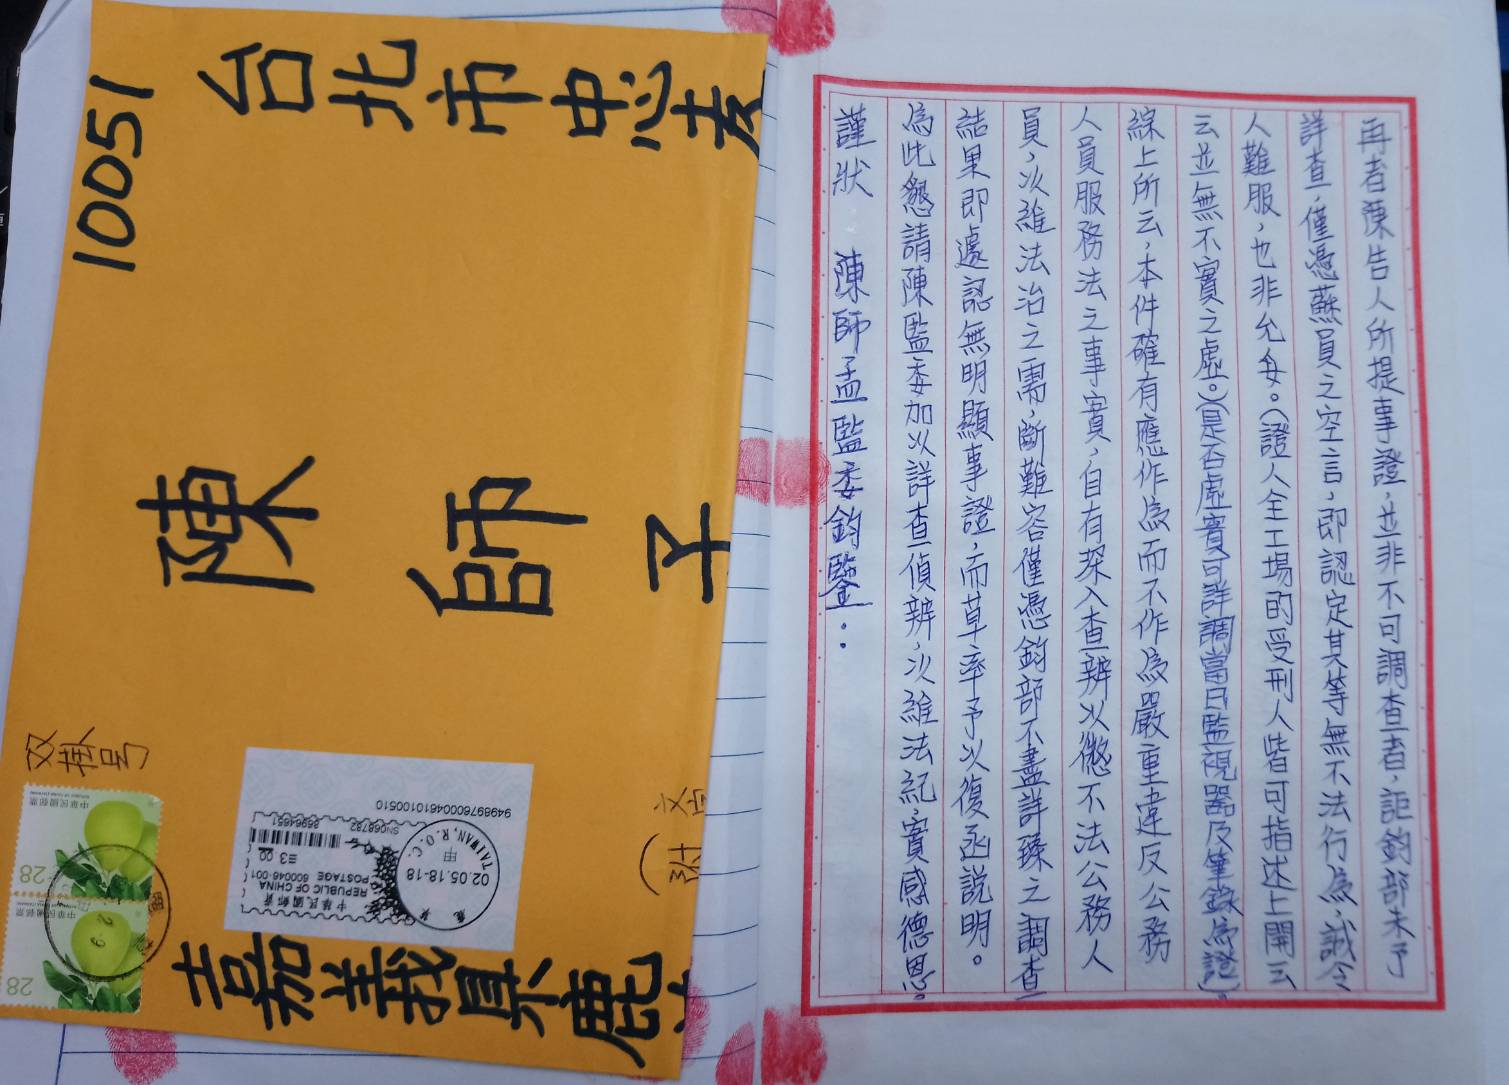 10051
台北市中
陳師
双掛号
中華民國郵票
28
中華民國郵票
28
9498976000461010 0510
SN068782
86964651
3.00
中華民國郵資
REPUBLIC OF CHINA
POSTAGE 600046-001
TAIWAN, R.O.C.
甲
02.05.18-18
嘉義縣鹿
再者陳告人所提事證,並非不可調查者,詎鈞部未予
詳查,僅憑蘇員之空言,即認定其等無不法行為,誠令
人難服,也非允毋。(證人全工場的受刑人皆可指述上開云
云並無不實之虛。)(是否虛實可詳調當日監視器及筆錄為證)。
綜上所云,本件確有應作為而不作為嚴重違反公務
人員服務法之事實,自有深入查辨以懲不法公務人
員,以維法治之需,斷難容僅憑鈞部不盡詳臻之調查
結果即遽認無明顯事證,而草率予以復函說明。
為此懇請陳監委加以詳查偵辨,以維法紀,實感德恩。
謹狀 陳師孟監委鈞鑒: